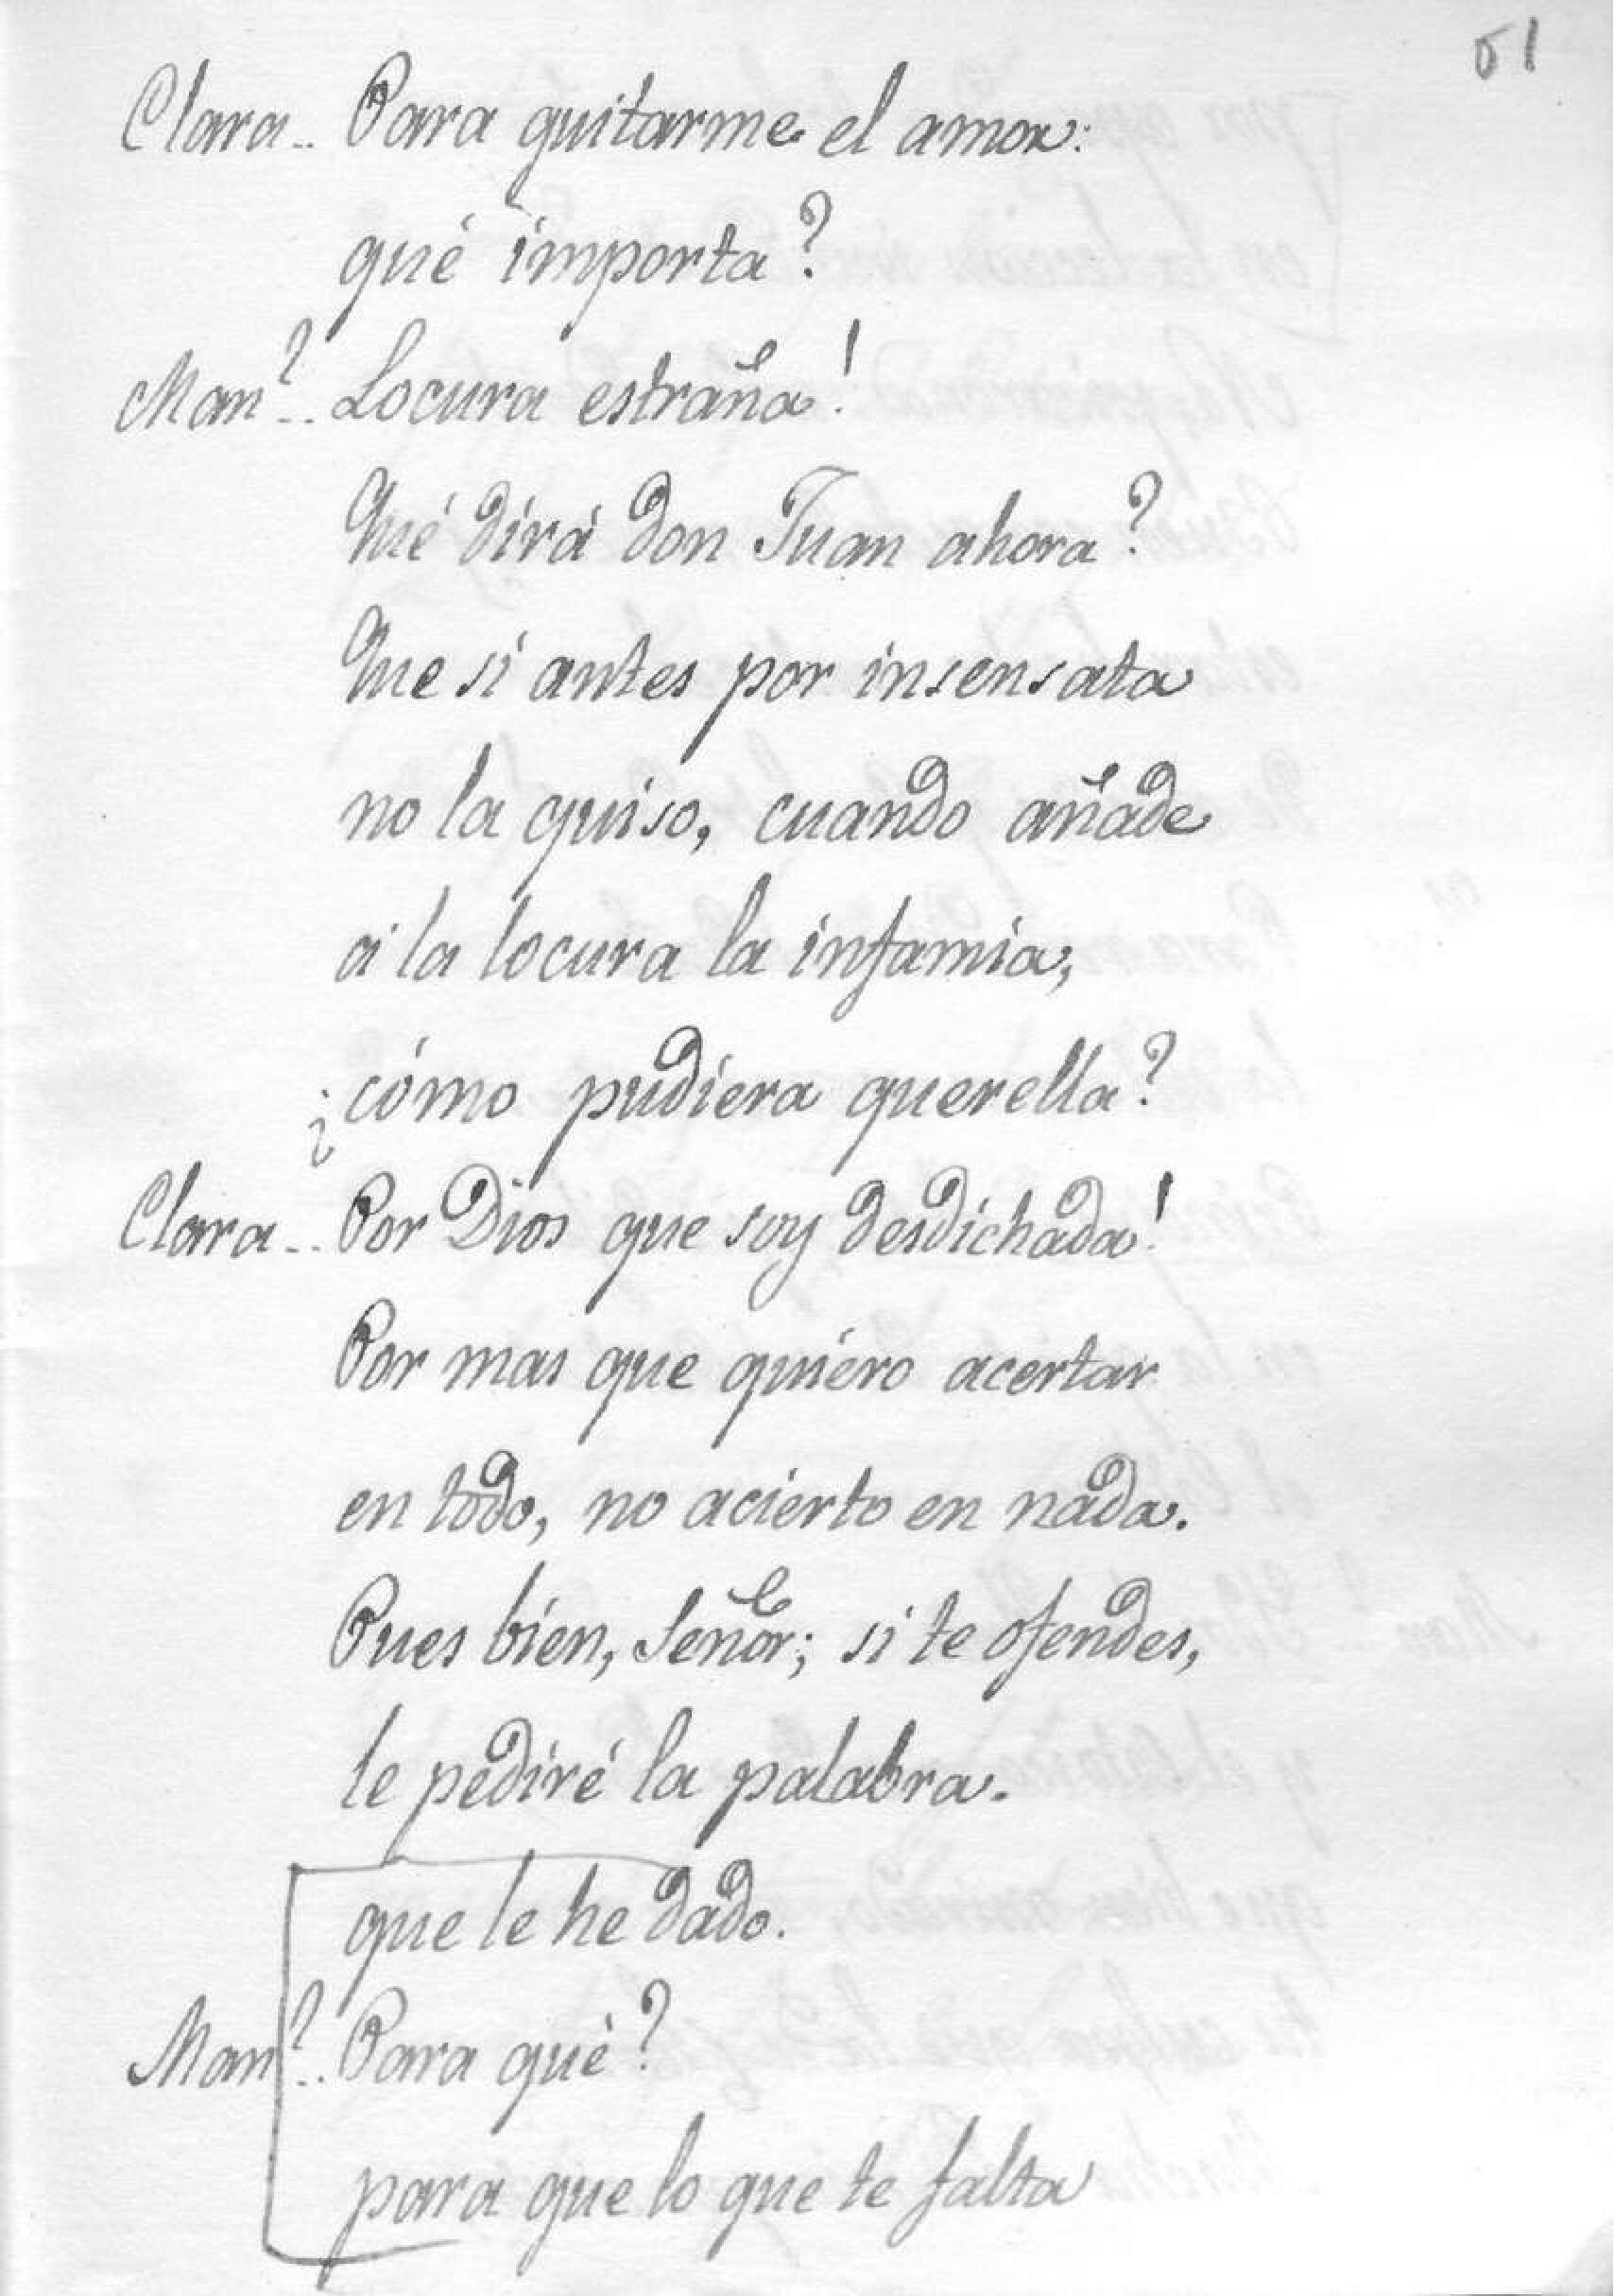 51
Clara.. Para quitarme el amor:
qué importa?
Man.l.. Locura estraña!
Qué dirá don Juan ahora?
Que si antes por insensata
no la quiso, cuando añade
á la locura la infamia,
¿cómo pudiera querella?
Clara.. Por Dios que soy desdichada!
Por mas que quiero acertar
en todo, no acierto en nada.
Pues bien, Señor; si te ofendes,
le pediré la palabra.
que le he dado.
Man.l.. Para qué?
para que lo que te falta